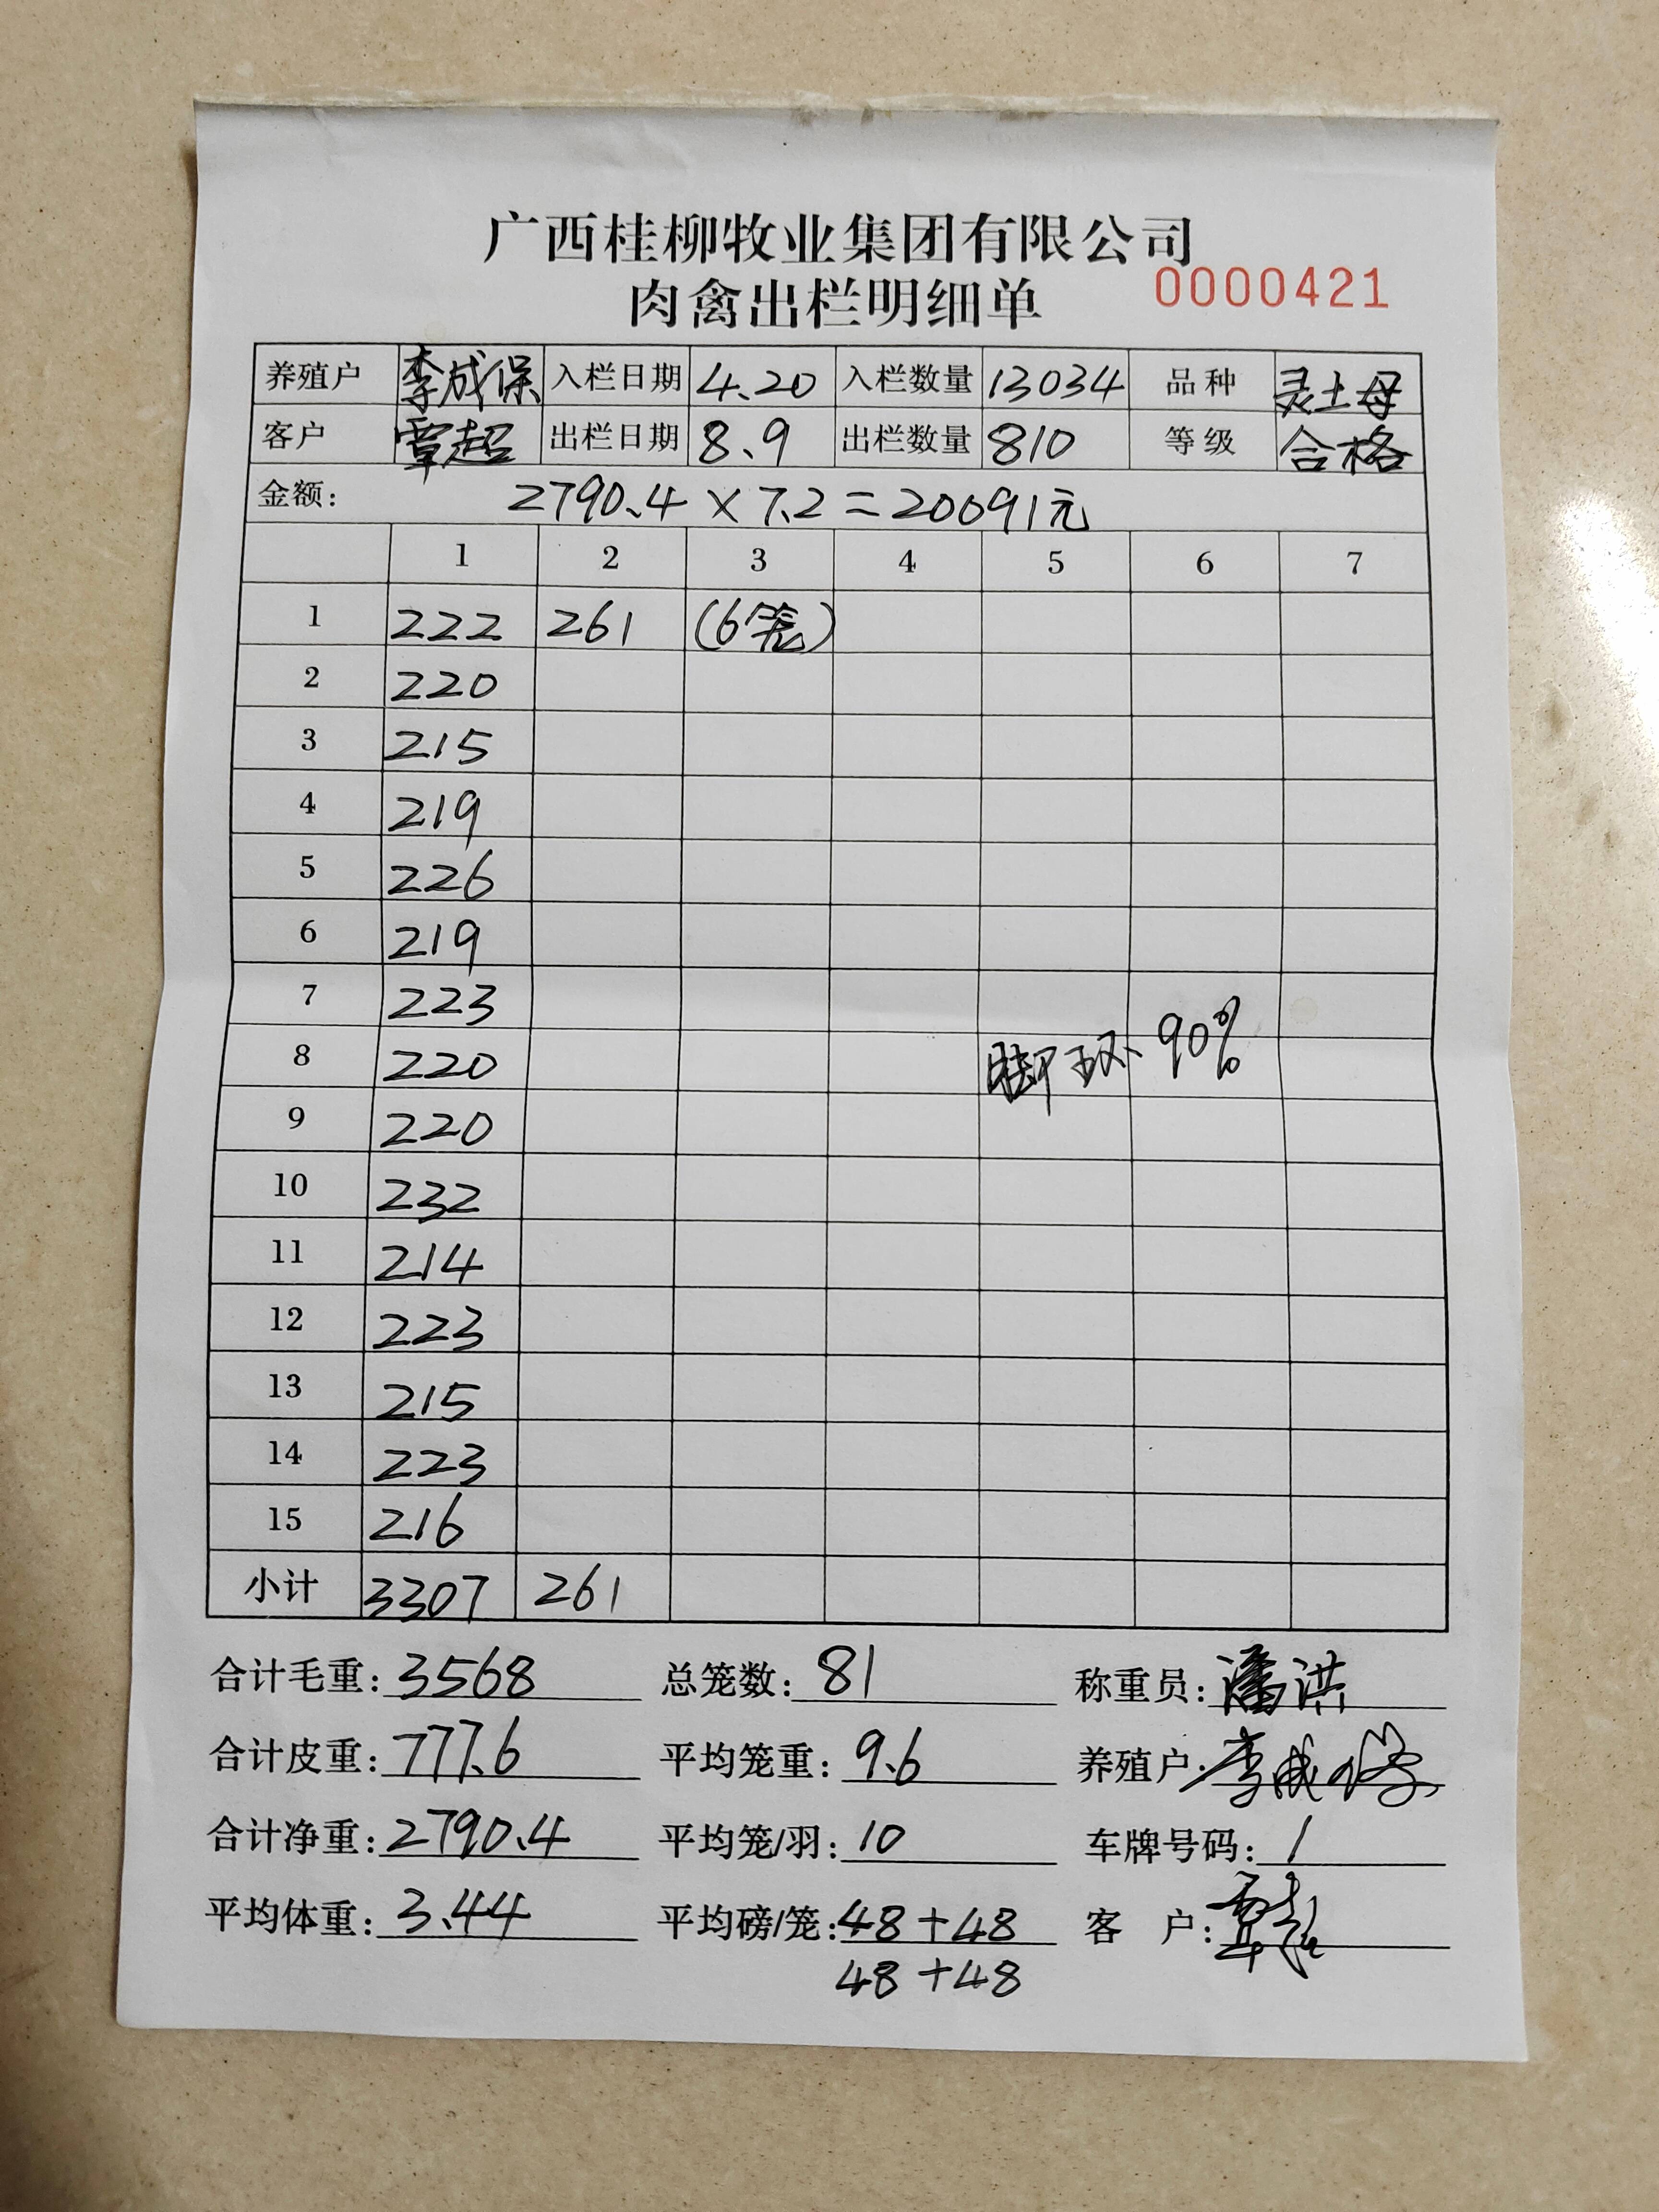 广西桂柳牧业集团有限公司
肉禽出栏明细单 0000421
养殖户 李成保 入栏日期 4.20 入栏数量 13034 品种 灵土母
客户 覃超 出栏日期 8.9 出栏数量 810 等级 合格
金额: 2790.4 × 7.2 = 20091元
1 2 3 4 5 6 7
1 222 261 (6笼)
2 220
3 215
4 219
5 226
6 219
7 223
8 220 脚环 90%
9 220
10 232
11 214
12 223
13 215
14 223
15 216
小计 3307 261
合计毛重: 3568 总笼数: 81 称重员: 潘洪
合计皮重: 777.6 平均笼重: 9.6 养殖户: 李成保
合计净重: 2790.4 平均笼/羽: 10 车牌号码: 1
平均体重: 3.44 平均磅/笼: 48+48 客 户: 覃超
48+48